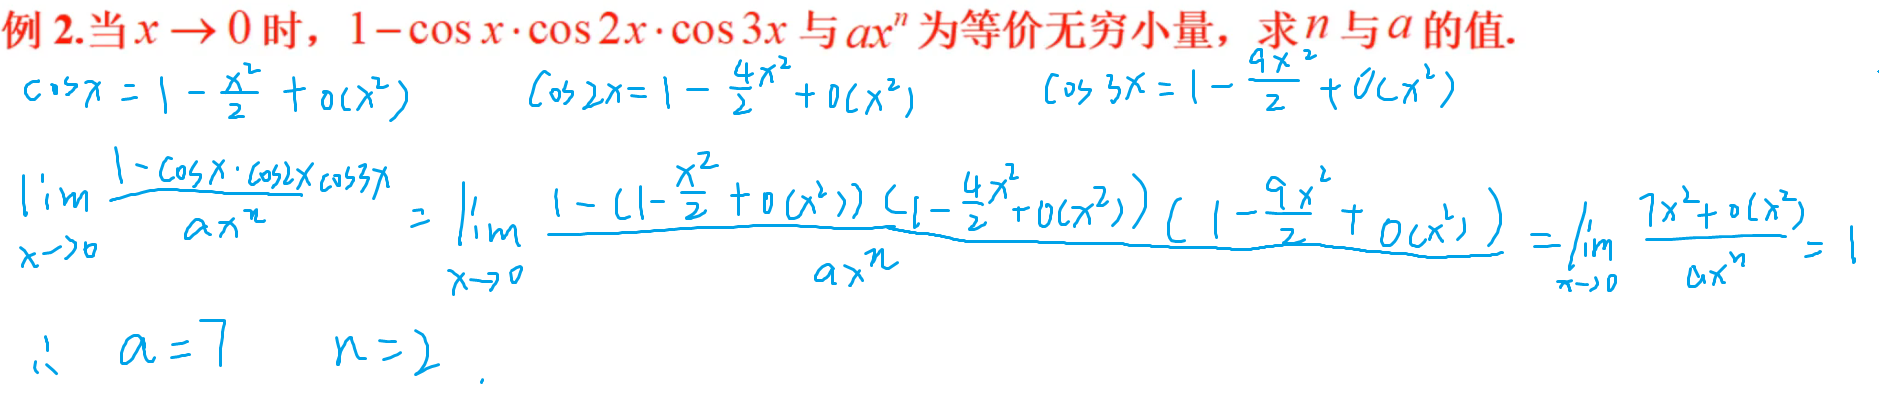 例 2.当 x → 0 时，1−cos x·cos 2x·cos 3x 与 axⁿ 为等价无穷小量，求 n 与 a 的值.
cosx = 1 − x²/2 + o(x²)    cos2x = 1 − 4x²/2 + o(x²)    cos3x = 1 − 9x²/2 + o(x²)
lim x→0 (1−cosx·cos2xcos3x)/(axⁿ) = lim x→0 (1−(1−x²/2+o(x²))(1−4x²/2+o(x²))(1−9x²/2+o(x²)))/(axⁿ) = lim x→0 (7x²+o(x²))/(axⁿ) = 1
∴ a=7    n=2.